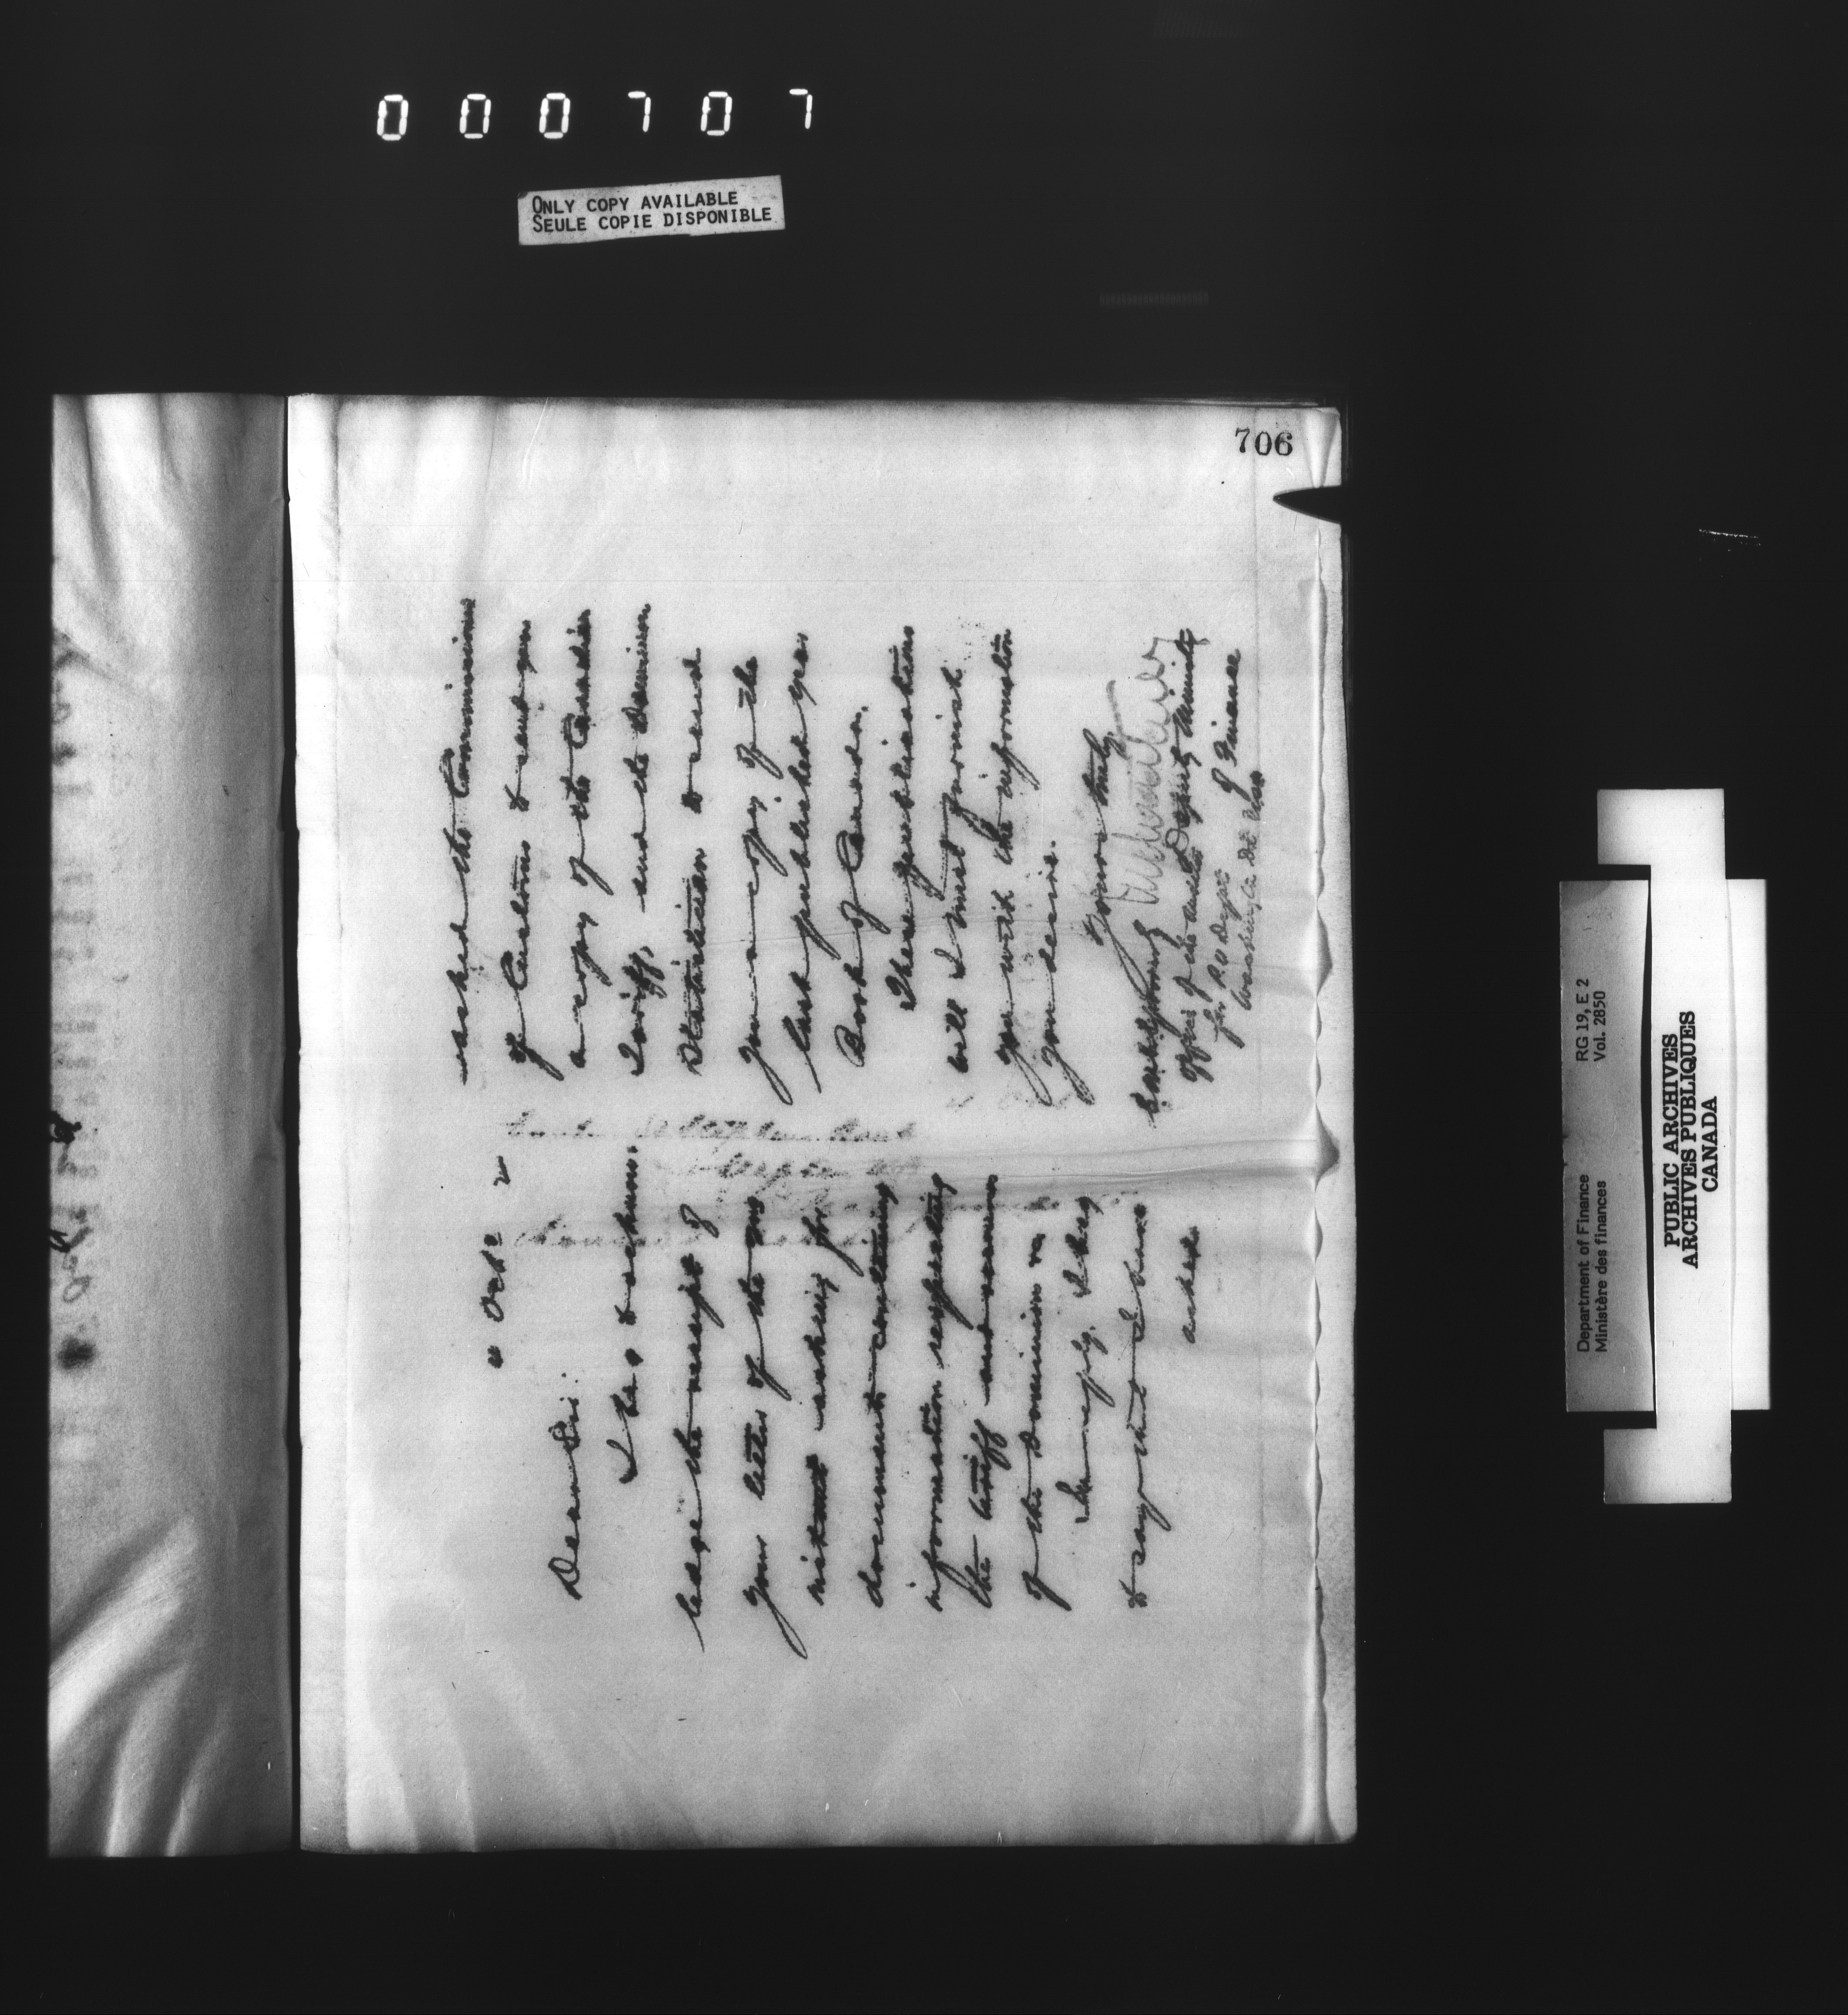 000707
ONLY COPY AVAILABLE
SEULE COPIE DISPONIBLE
706
Oct
Dear Sir:
I beg to acknow-
ledge the receipt of
your letter of the
instant asking for
documents containing
information respecting
the tariff and revenues
of the Dominion
In reply, I beg
to say that I have
asked
asked the Commissioner
of Customs to send you
a copy of the Canadian
Tariff, and the Dominion
Statistician to send
you a copy of the
last published year
Book of Canada.
These publications
will I trust furnish
you with the information
you desire.
Yours truly,
Deputy Minister
of Finance
Office of the
for P.O. Dept
Washington DC
Department of Finance RG 19, E 2
Ministère des finances Vol. 2850
PUBLIC ARCHIVES
ARCHIVES PUBLIQUES
CANADA